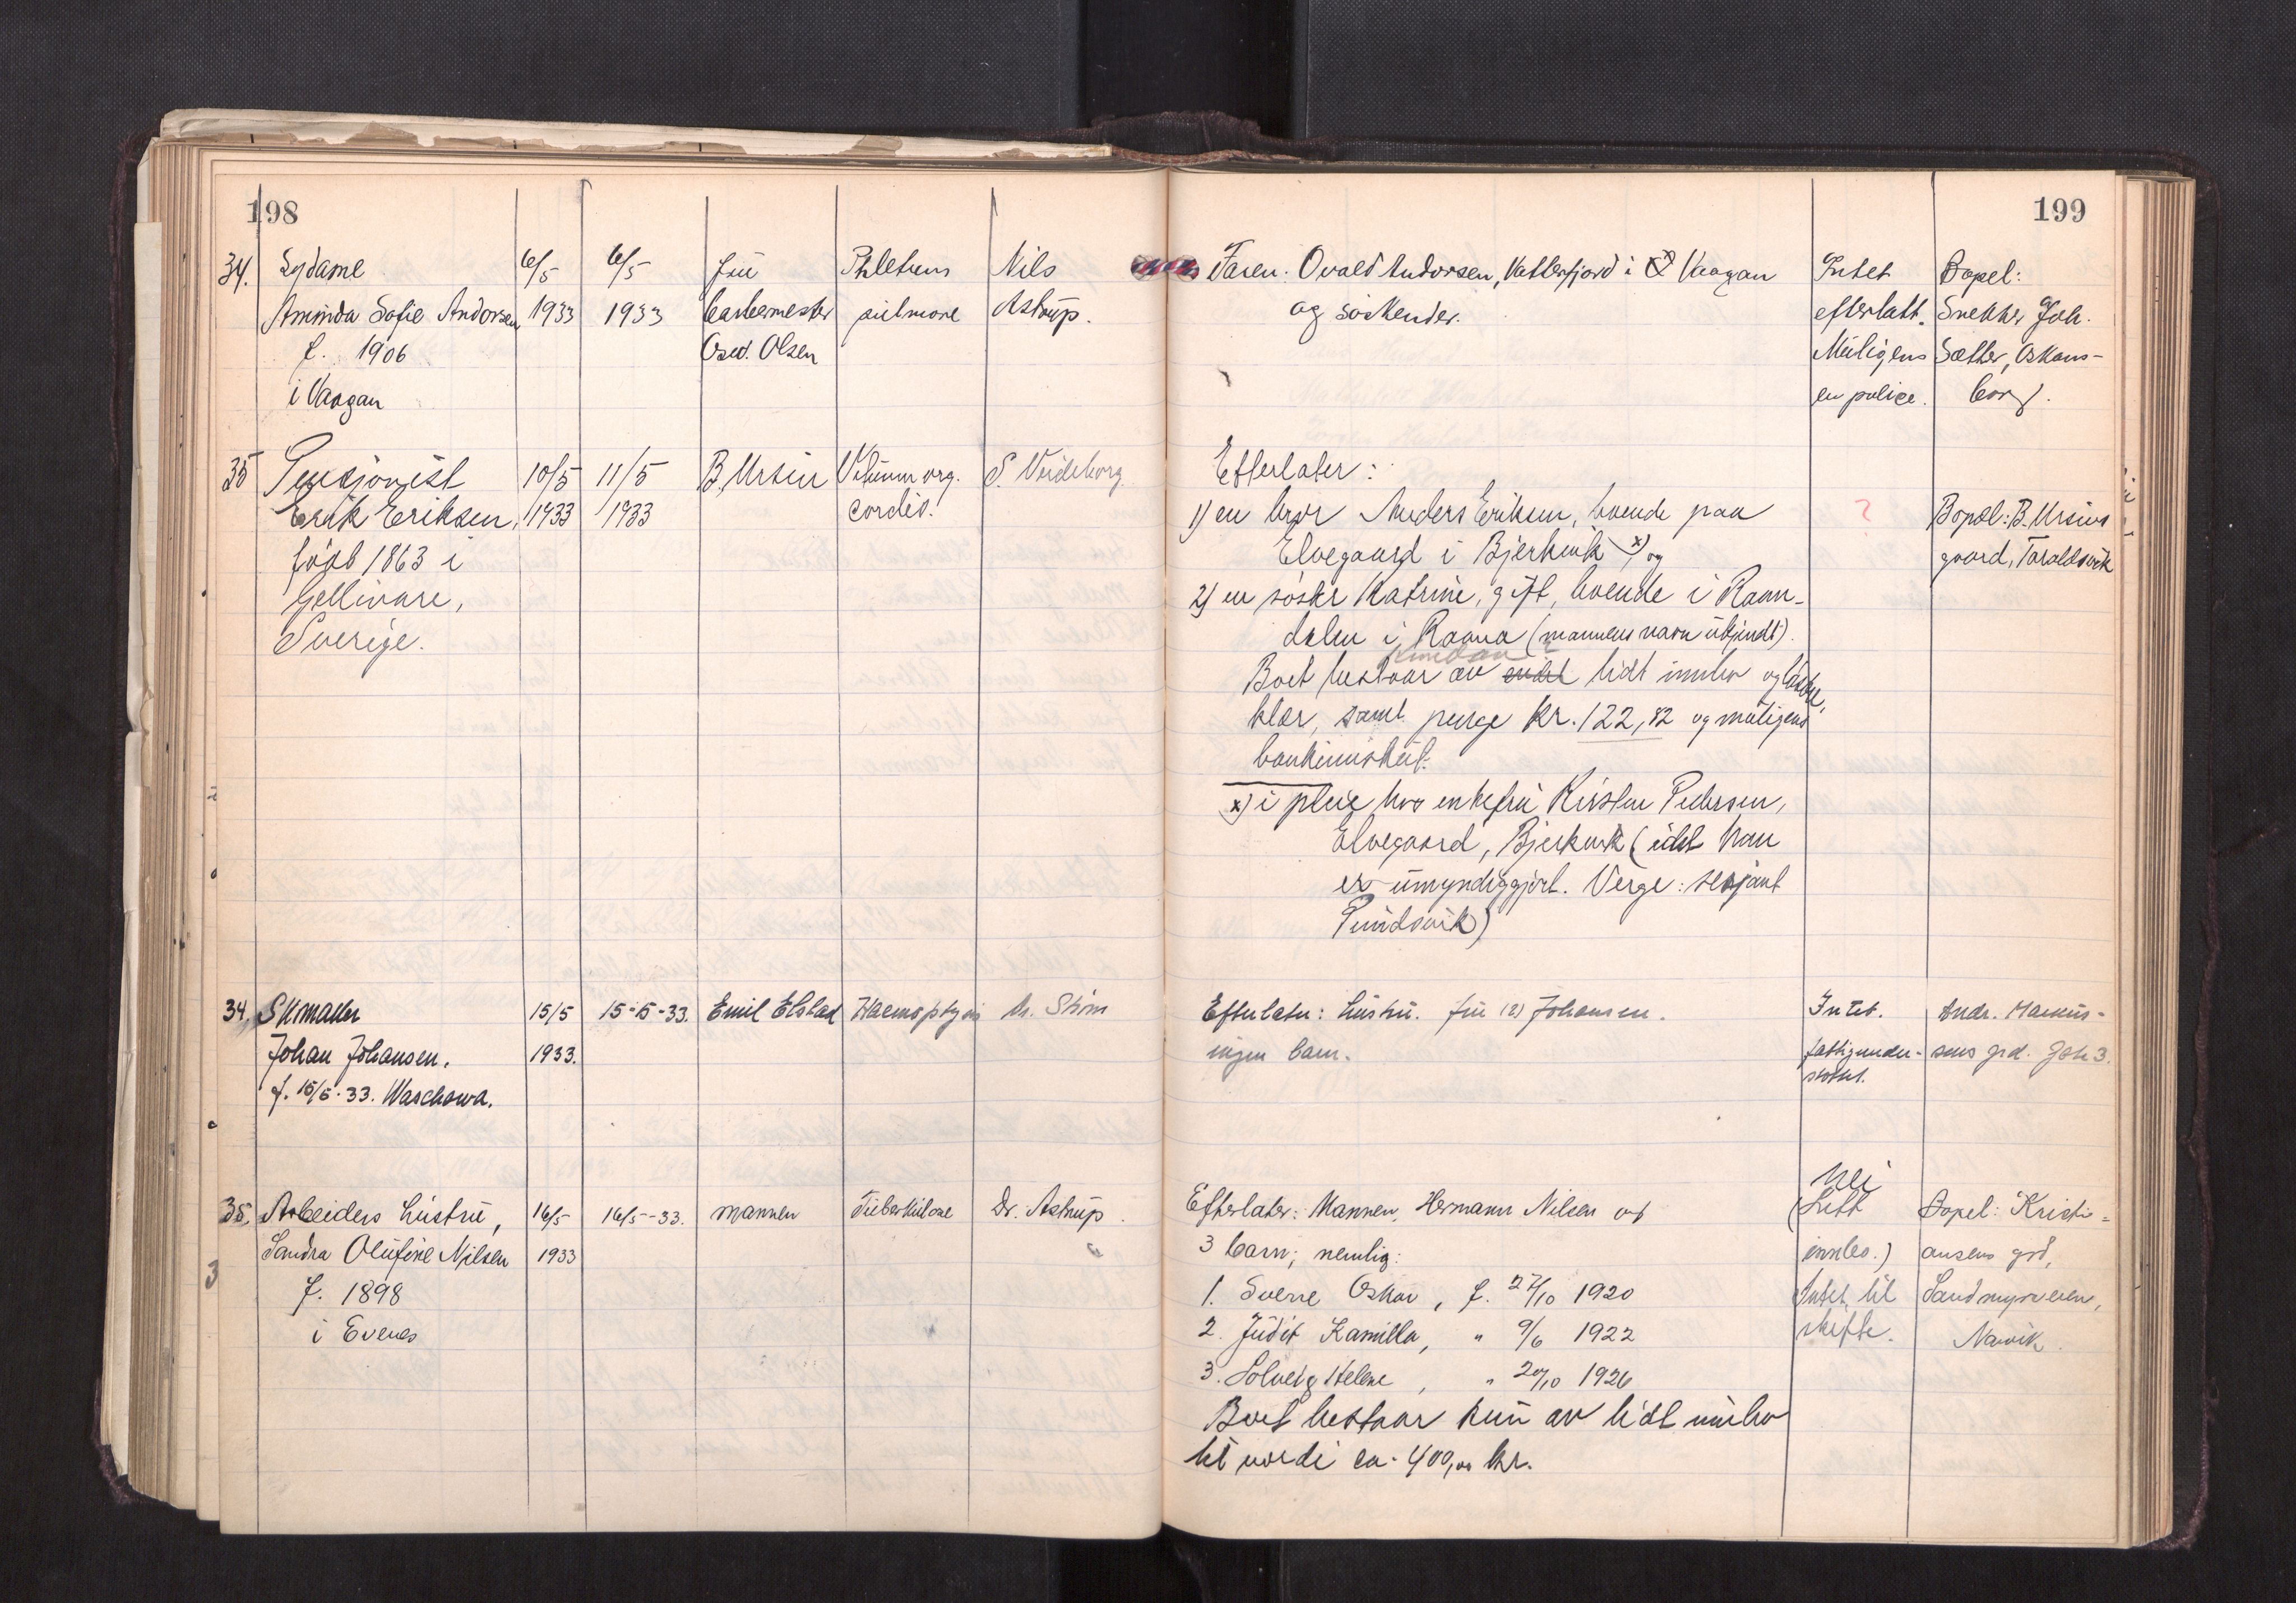 198
34. Sydame 6/5 6/5 Fru Phletum Nils
Aminda Sofie Andorsen 1933 1933 barbermester pulmore Astrup.
f. 1906 Osw. Olsen
i Vaagan
35 Pensjonist 10/5 11/5 B. Ursin Vitium org.
Erik Eriksen, 1933 1933 cordis.
född 1863 i
Gellivare,
Sverige.
34. Skomaker 15/5 15-5-33. Emil Elstad Haemoptysis dr. Strøm
Johan Johansen. 1933.
f. 15/5-33. Waschowa.
35. Arbeiders hustru, 16/5 16/5-33. mannen Tuberkulose Dr. Astrup.
Sandra Olufine Nilsen 1933
f. 1898
i Evenes
199
Faren: Ovald Andorsen, Vatterfjord i Vaagan Intet Bopel:
og søskender. efterlatt. Snekker Joh.
Muligens Sæther, Oskars-
en police. borg.
Efterlater:
1) en bror Anders Eriksen, boende paa ? Bopæl: B. Ursins
Elvegaard i Bjerkvik x) og gaard, Taraldsvik
2) en søster Katrine, gift, boende i Raan-
dalen i Raana (mannens navn ukjendt).
Boet bestaar av lidt innbo og
klær, samt penge kr. 122,82 og muligens
bankinnskud.
x) i pleie hos enkefru Kirsten Pedersen,
Elvegaard, Bjerkvik (idet han
er umyndiggjort. Verge: sersjant
Pundsvik)
Efterlater: hustru. fru (?) Johansen. Intet. Andr. Markus-
ingen barn. fattigunder- sens grd. Gate 3.
støttet.
nei
Efterlater: Mannen, Hermann Nilsen og (Litt Bopel: Kristi-
3 barn; nemlig: innbo.) ansens grd,
1. Sverre Oskar, f. 27/10 1920 Intet til Sandmyrveien,
2. Judit Kamilla, " 9/6 1922 skifte. Narvik.
3. Solveig Helene, " 20/10 1926
Boet bestaar kun av lidt innbo
til verdi ca. 400,00 kr.